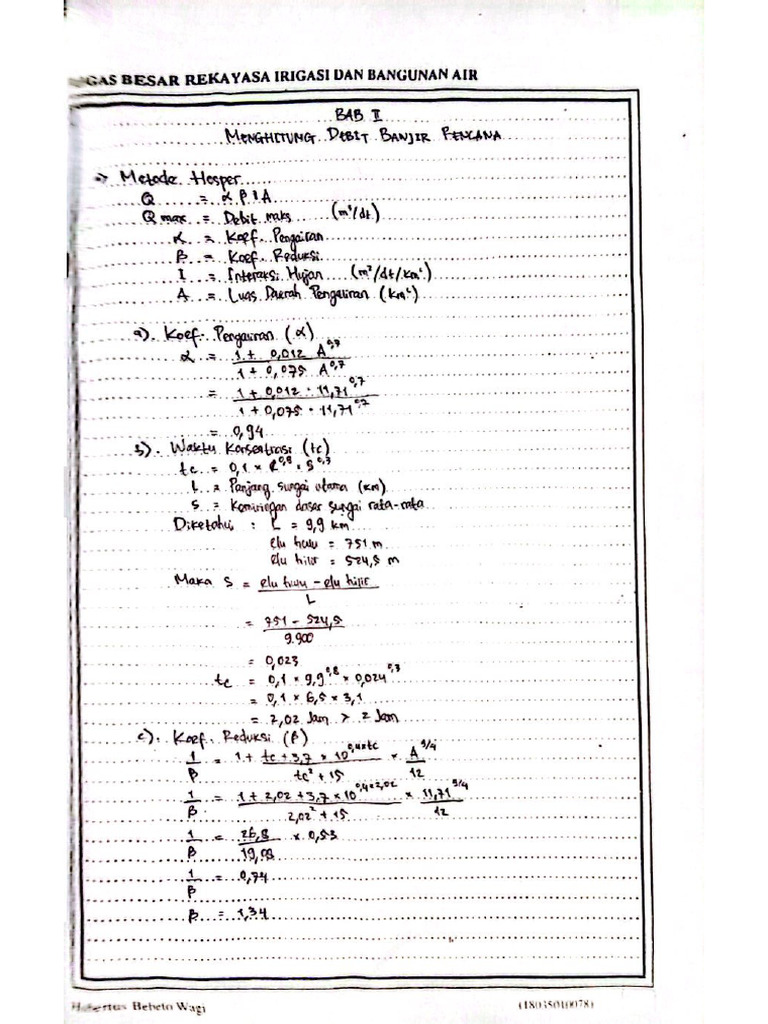 GAS BESAR REKAYASA IRIGASI DAN BANGUNAN AIR
BAB II
MENGHITUNG DEBIT BANJIR RENCANA
=> Metode Hosper
Q = α β I A
Q max = Debit maks (m³/dt)
α = Koef. Pengairan
β = Koef. Reduksi
I = Interaksi Hujan (m³/dt/km²)
A = Luas Daerah Pengairan (km²)
a). Koef. Pengairan (α)
α = 1 + 0,012 A^0,7
1 + 0,075 A^0,7
= 1 + 0,012 · 11,71^0,7
1 + 0,075 · 11,71^0,7
= 0,94
b). Waktu Konsentrasi (tc)
tc = 0,1 × L^0,8 × S^0,3
L = Panjang sungai utama (km)
S = Kemiringan dasar sungai rata-rata
Diketahui : L = 9,9 km
elv hulu = 751 m
elv hilir = 524,5 m
Maka S = elv hulu – elv hilir
L
= 751 – 524,5
9.900
= 0,023
tc = 0,1 × 9,9^0,8 × 0,024^0,3
= 0,1 × 6,5 × 3,1
= 2,02 Jam > 2 Jam
c). Koef. Reduksi (β)
1/β = 1 + tc + 3,7 × 10^0,4×tc × A^3/4
tc² + 15 12
1/β = 1 + 2,02 + 3,7 × 10^0,4×2,02 × 11,71^3/4
2,02² + 15 12
1/β = 26,8 × 0,53
19,08
1/β = 0,74
β = 1,34
Hubertus Bebeto Wagi
(18035010078)